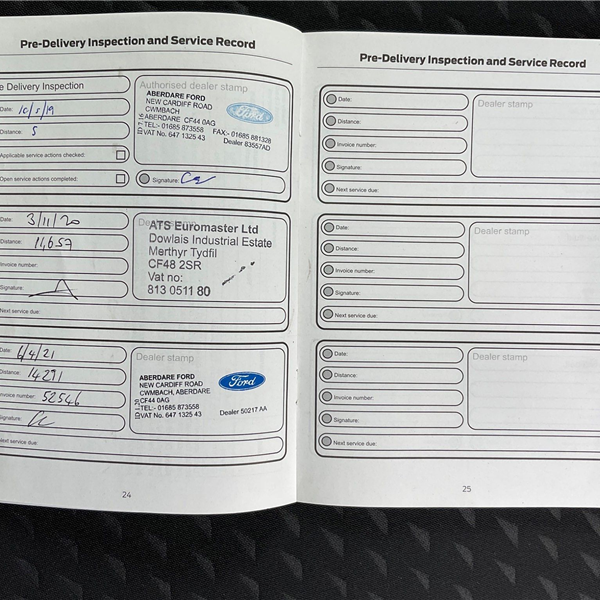 Pre-Delivery Inspection and Service Record
e Delivery Inspection
Date: 10/5/19
Distance: 5
Applicable service actions checked:
Open service actions completed:
Authorised dealer stamp
ABERDARE FORD
NEW CARDIFF ROAD
CWMBACH
ABERDARE CF44 0AG
TEL:- 01685 873558 FAX:- 01685 881328
VAT No. 647 1325 43 Dealer 83557AD
Ford
Signature:
Date: 3/11/20
Distance: 11,657
Invoice number:
Signature:
Next service due:
ATS Euromaster Ltd
Dowlais Industrial Estate
Merthyr Tydfil
CF48 2SR
Vat no:
813 0511 80
Date: 6/4/21
Distance: 14291
Invoice number: 52546
Signature:
Next service due:
Dealer stamp
ABERDARE FORD
NEW CARDIFF ROAD
CWMBACH, ABERDARE
CF44 0AG
TEL:- 01685 873558
VAT No. 647 1325 43 Dealer 50217 AA
Ford
24
Pre-Delivery Inspection and Service Record
Date:
Distance:
Invoice number:
Signature:
Next service due:
Dealer stamp
Date:
Distance:
Invoice number:
Signature:
Next service due:
Dealer stamp
Date:
Distance:
Invoice number:
Signature:
Next service due:
Dealer stamp
25